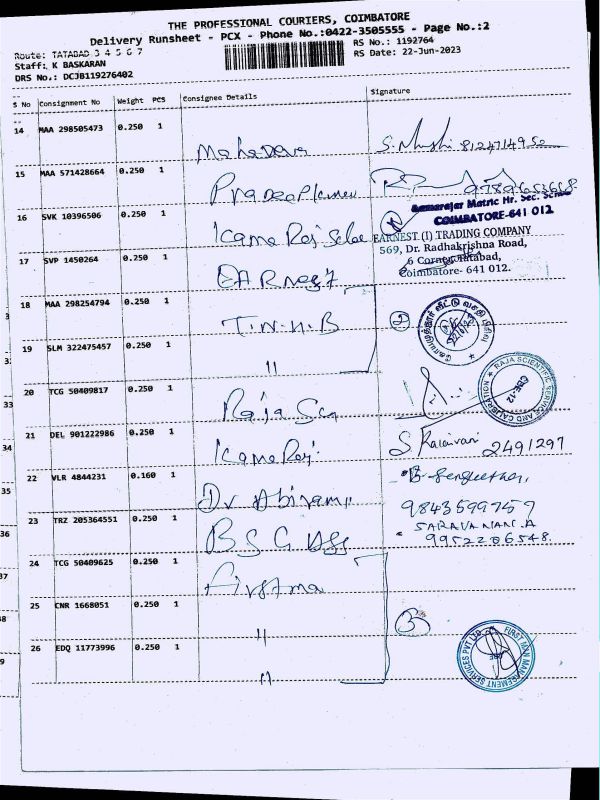 THE PROFESSIONAL COURIERS, COIMBATORE
Delivery Runsheet - PCX - Phone No.:0422-3505555 - Page No.:2
Route: TATABAD 3 4 5 6 7
RS No.: 1192764
Staff: K BASKARAN
RS Date: 22-Jun-2023
DRS No.: DCJB119276402
S No Consignment No Weight PCS Consignee Details Signature
14 MAA 298505473 0.250 1 Mahadeva 8124714950
15 MAA 571428664 0.250 1
16 SVK 10396506 0.250 1 Kama Raj
Matric Hr. Sec.
COIMBATORE-641 012
17 SVP 1450264 0.250 1
EARNEST (I) TRADING COMPANY
569, Dr. Radhakrishna Road,
6 Corner Tatabad,
Coimbatore- 641 012.
18 MAA 298254794 0.250 1 T.N.H.B 2
19 SLM 322475457 0.250 1 "
20 TCG 50409817 0.250 1 Raja Sci
RAJA SCIENTIFIC SERVICE AND CALIBRATION
CBE-12
21 DEL 901222986 0.250 1 Kama Raj S Kalaivani 2491297
22 VLR 4844231 0.160 1 Dr Abirami
23 TRZ 205364551 0.250 1 9843599759
SARAVANAN.A
9952286548
24 TCG 50409625 0.250 1
25 CNR 1668051 0.250 1 " 3
26 EDQ 11773996 0.250 1 "
FIRST MAN MANAGEMENT SERVICES PVT LTD